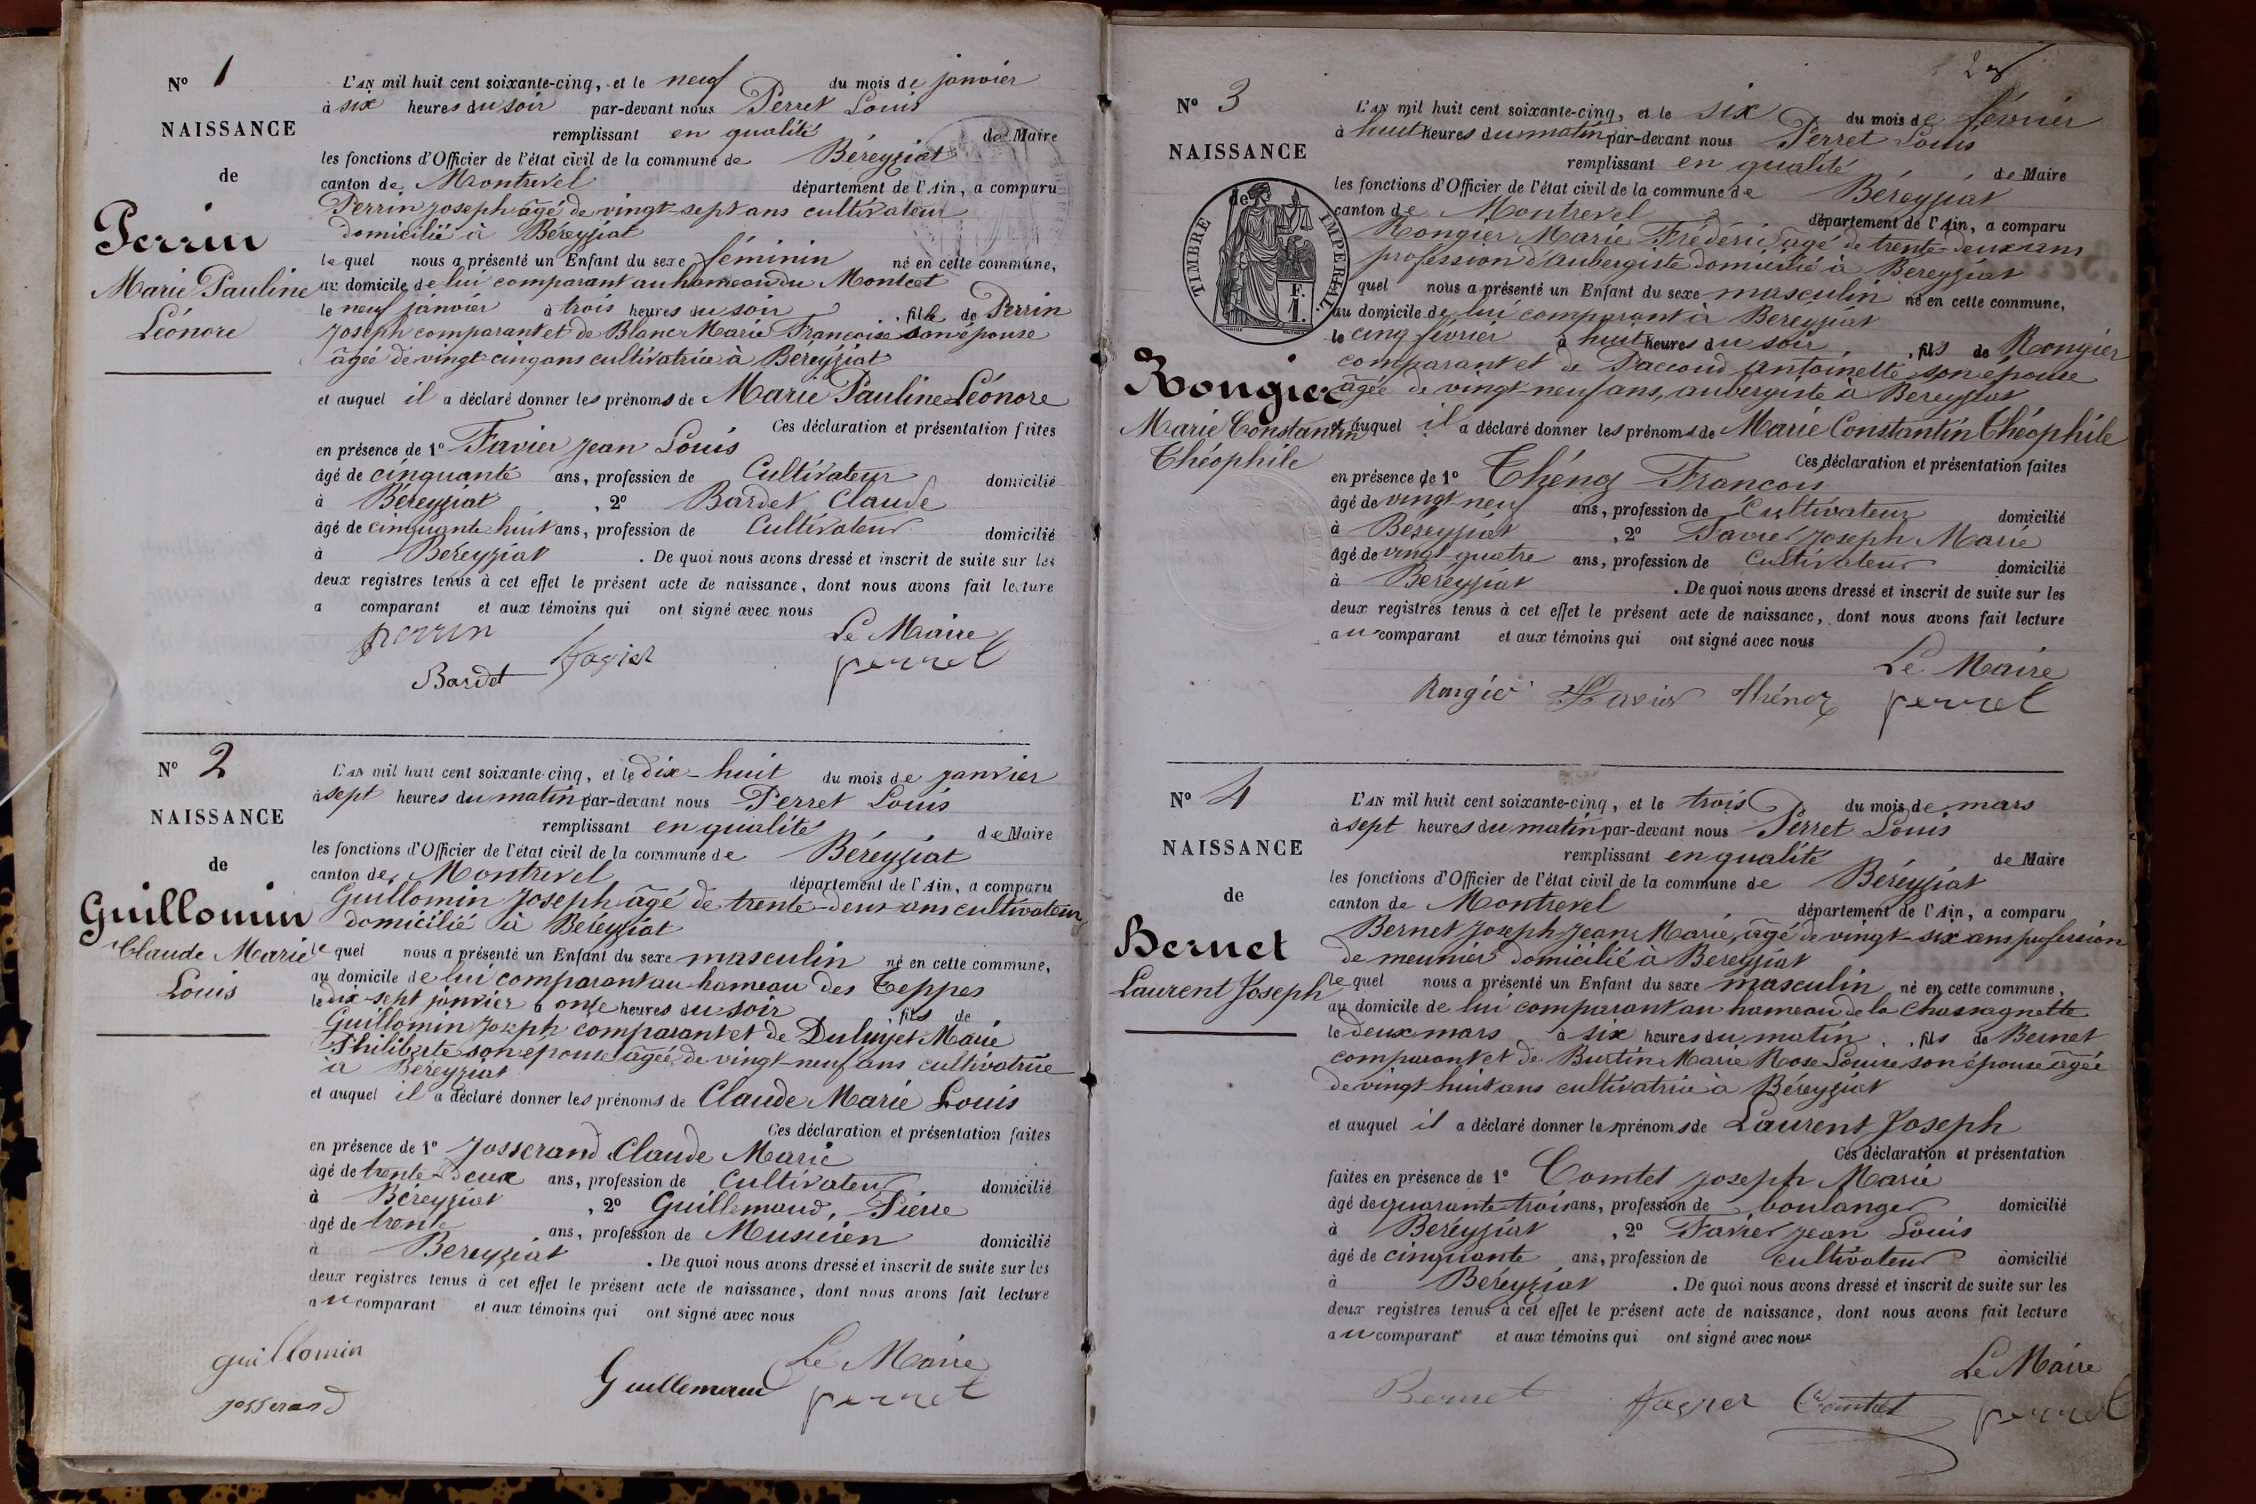 N° 1
NAISSANCE
de
Perrin
Marie Pauline
Léonore
L'AN mil huit cent soixante-cinq, et le neuf du mois de janvier
à six heures du soir par-devant nous Perret Louis
remplissant en qualité de Maire
les fonctions d'Officier de l'état civil de la commune de Béreyziat
canton de Montrevel département de l'Ain, a comparu
Perrin joseph âgé de vingt-sept ans cultivateur
domicilié à Béreyziat
lequel nous a présenté un Enfant du sexe féminin né en cette commune,
au domicile de lui comparant au hameau du Montcet
le neuf janvier à trois heures du soir, fille de Perrin
joseph comparant et de Blanc Marie Françoise son épouse
âgée de vingt-cinq ans cultivatrice à Béreyziat
et auquel il a déclaré donner les prénoms de Marie Pauline Léonore
Ces déclaration et présentation faites
en présence de 1° Favier jean Louis
âgé de cinquante ans, profession de Cultivateur domicilié
à Béreyziat, 2° Bardet Claude
âgé de cinquante huit ans, profession de Cultivateur domicilié
à Béreyziat. De quoi nous avons dressé et inscrit de suite sur les
deux registres tenus à cet effet le présent acte de naissance, dont nous avons fait lecture
a comparant et aux témoins qui ont signé avec nous
perrin Le Maire
Bardet favier perret
N° 2
NAISSANCE
de
Guillomin
Claude Marie
Louis
L'AN mil huit cent soixante-cinq, et le dix-huit du mois de janvier
à sept heures du matin par-devant nous Perret Louis
remplissant en qualité de Maire
les fonctions d'Officier de l'état civil de la commune de Béreyziat
canton de Montrevel département de l'Ain, a comparu
Guillomin joseph âgé de trente-deux ans cultivateur
domicilié à Béreyziat
lequel nous a présenté un Enfant du sexe masculin né en cette commune,
au domicile de lui comparant au hameau des Teppes
le dix-sept janvier à onze heures du soir fils de
Guillomin joseph, comparant et de Marie
Philiberte son épouse âgée de vingt-neuf ans cultivatrice
à Béreyziat
et auquel il a déclaré donner les prénoms de Claude Marie Louis
Ces déclaration et présentation faites
en présence de 1° Josserand Claude Marie
âgé de trente deux ans, profession de Cultivateur domicilié
à Béreyziat, 2° Guillemaud, Pierre
âgé de trente ans, profession de Musicien domicilié
à Béreyziat. De quoi nous avons dressé et inscrit de suite sur les
deux registres tenus à cet effet le présent acte de naissance, dont nous avons fait lecture
au comparant et aux témoins qui ont signé avec nous
guillomin Le Maire
josserand Guillemaud perret
2
N° 3
NAISSANCE
de
TIMBRE IMPERIAL
F.
1.
Rongier
Marie Constantin
Théophile
L'AN mil huit cent soixante-cinq, et le six du mois de février
à huit heures du matin par-devant nous Perret Louis
remplissant en qualité de Maire
les fonctions d'Officier de l'état civil de la commune de Béreyziat
canton de Montrevel département de l'Ain, a comparu
Rongier Marie Frédéric âgé de trente-deux ans
profession d'aubergiste domicilié à Béreyziat
quel nous a présenté un Enfant du sexe masculin né en cette commune,
au domicile de lui comparant à Béreyziat
le cinq février à huit heures du soir, fils de Rongier
comparant et de Paccoud antoinette son épouse
âgée de vingt-neuf ans, aubergiste à Béreyziat
et auquel il a déclaré donner les prénoms de Marie Constantin Théophile
Ces déclaration et présentation faites
en présence de 1° Thénoz François
âgé de vingt neuf ans, profession de Cultivateur domicilié
à Béreyziat, 2° Favier Joseph Marie
âgé de vingt-quatre ans, profession de Cultivateur domicilié
à Béreyziat. De quoi nous avons dressé et inscrit de suite sur les
deux registres tenus à cet effet le présent acte de naissance, dont nous avons fait lecture
au comparant et aux témoins qui ont signé avec nous
Le Maire
Rongier favier thénoz perret
N° 4
NAISSANCE
de
Bernet
Laurent Joseph
L'AN mil huit cent soixante-cinq, et le trois du mois de mars
à sept heures du matin par-devant nous Perret Louis
remplissant en qualité de Maire
les fonctions d'Officier de l'état civil de la commune de Béreyziat
canton de Montrevel département de l'Ain, a comparu
Bernet Joseph Jean Marie, âgé de vingt-six ans profession
de meunier domicilié à Béreyziat
lequel nous a présenté un Enfant du sexe masculin né en cette commune,
au domicile de lui comparant au hameau de la Chassagnette
le deux mars à six heures du matin, fils de Bernet
comparant et de Burtin Marie Rose Louise son épouse âgée
de vingt huit ans cultivatrice à Béreyziat
et auquel il a déclaré donner les prénoms de Laurent Joseph
Ces déclaration et présentation
faites en présence de 1° Comtet joseph Marie
âgé de quarante trois ans, profession de boulanger domicilié
à Béreyziat, 2° Favier jean Louis
âgé de cinquante ans, profession de cultivateur domicilié
à Béreyziat. De quoi nous avons dressé et inscrit de suite sur les
deux registres tenus à cet effet le présent acte de naissance, dont nous avons fait lecture
au comparant et aux témoins qui ont signé avec nous
Le Maire
Bernet favier Comtet perret